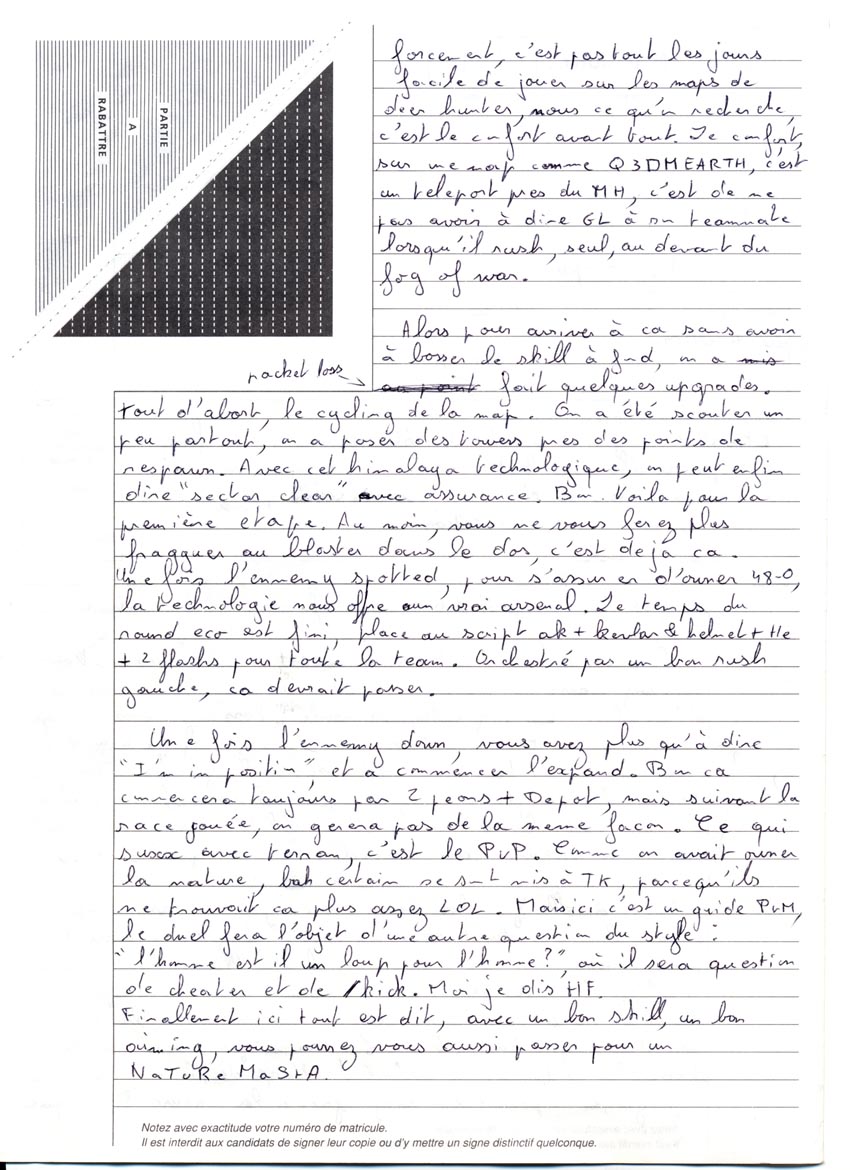 PARTIE
A
RABATTRE
forcement, c'est pas tout les jours
facile de jouer sur les maps de
deer hunter, nous ce qu'on recherche,
c'est le confort avant tout. Le confort,
sur une map comme Q3DMEARTH, c'est
un teleport pres du MH, c'est de ne
pas avoir à dire GL à son teammate
lorsqu'il rush, seul, au devant du
fog of war.
Alors pour arriver à ca sans avoir
à bosser le skill à fond, on a mis
packet loss
au point fait quelques upgrades.
tout d'abort, le cycling de la map. On a été scouter un
peu partout, on a poser des towers pres des points de
respawn. Avec cet himalaya technologique, on peut enfin
dire "sector clear" avec assurance. Bon. Voila pour la
première etape. Au moin, vous ne vous ferez plus
fragguer au blaster dans le dos, c'est deja ca.
Une fois l'ennemy spotted, pour s'assurer d'owner 48-0,
la technologie nous offre un vrai arsenal. Le temps du
round eco est fini, place au script ak + kevlar & helmet + He
+ 2 flashs pour toute la team. Orchestré par un bon rush
gauche, ca devrait passer.
Une fois l'ennemy down, vous avez plus qu'à dire
"I'm in position", et a commencer l'expand. Bon ca
commencera toujours par 2 peons + Depot, mais suivant la
race jouée, on gerera pas de la meme facon. Ce qui
susxx avec terran, c'est le PvP. Comme on avait owner
la nature, bah certain se sont mis à TK, parcequ'ils
ne trouvait ca plus assez LOL. Mais ici c'est un guide PvM,
le duel fera l'objet d'une autre question du style :
"l'homme est il un loup pour l'homme?", où il sera question
de cheater et de /kick. Moi je dis HF.
Finallement ici tout est dit, avec un bon skill, un bon
aiming, vous pourrez vous aussi passer pour un
NaTuRe MaStA.
Notez avec exactitude votre numéro de matricule.
Il est interdit aux candidats de signer leur copie ou d'y mettre un signe distinctif quelconque.